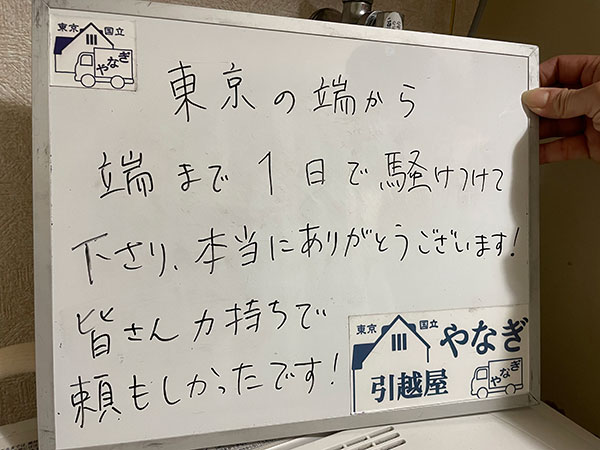 東京 国立
やなぎ
東京の端から
端まで1日で騒けつけて
下さり、本当にありがとうございます!
皆さん力持ちで
頼もしかったです!
東京 国立 やなぎ
引越屋 やなぎ